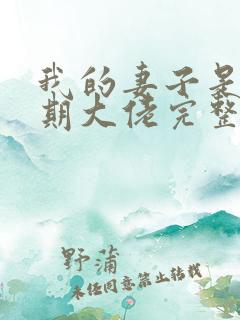 我的妻子是
期大佬完整
野蒲
未经同意禁止转载